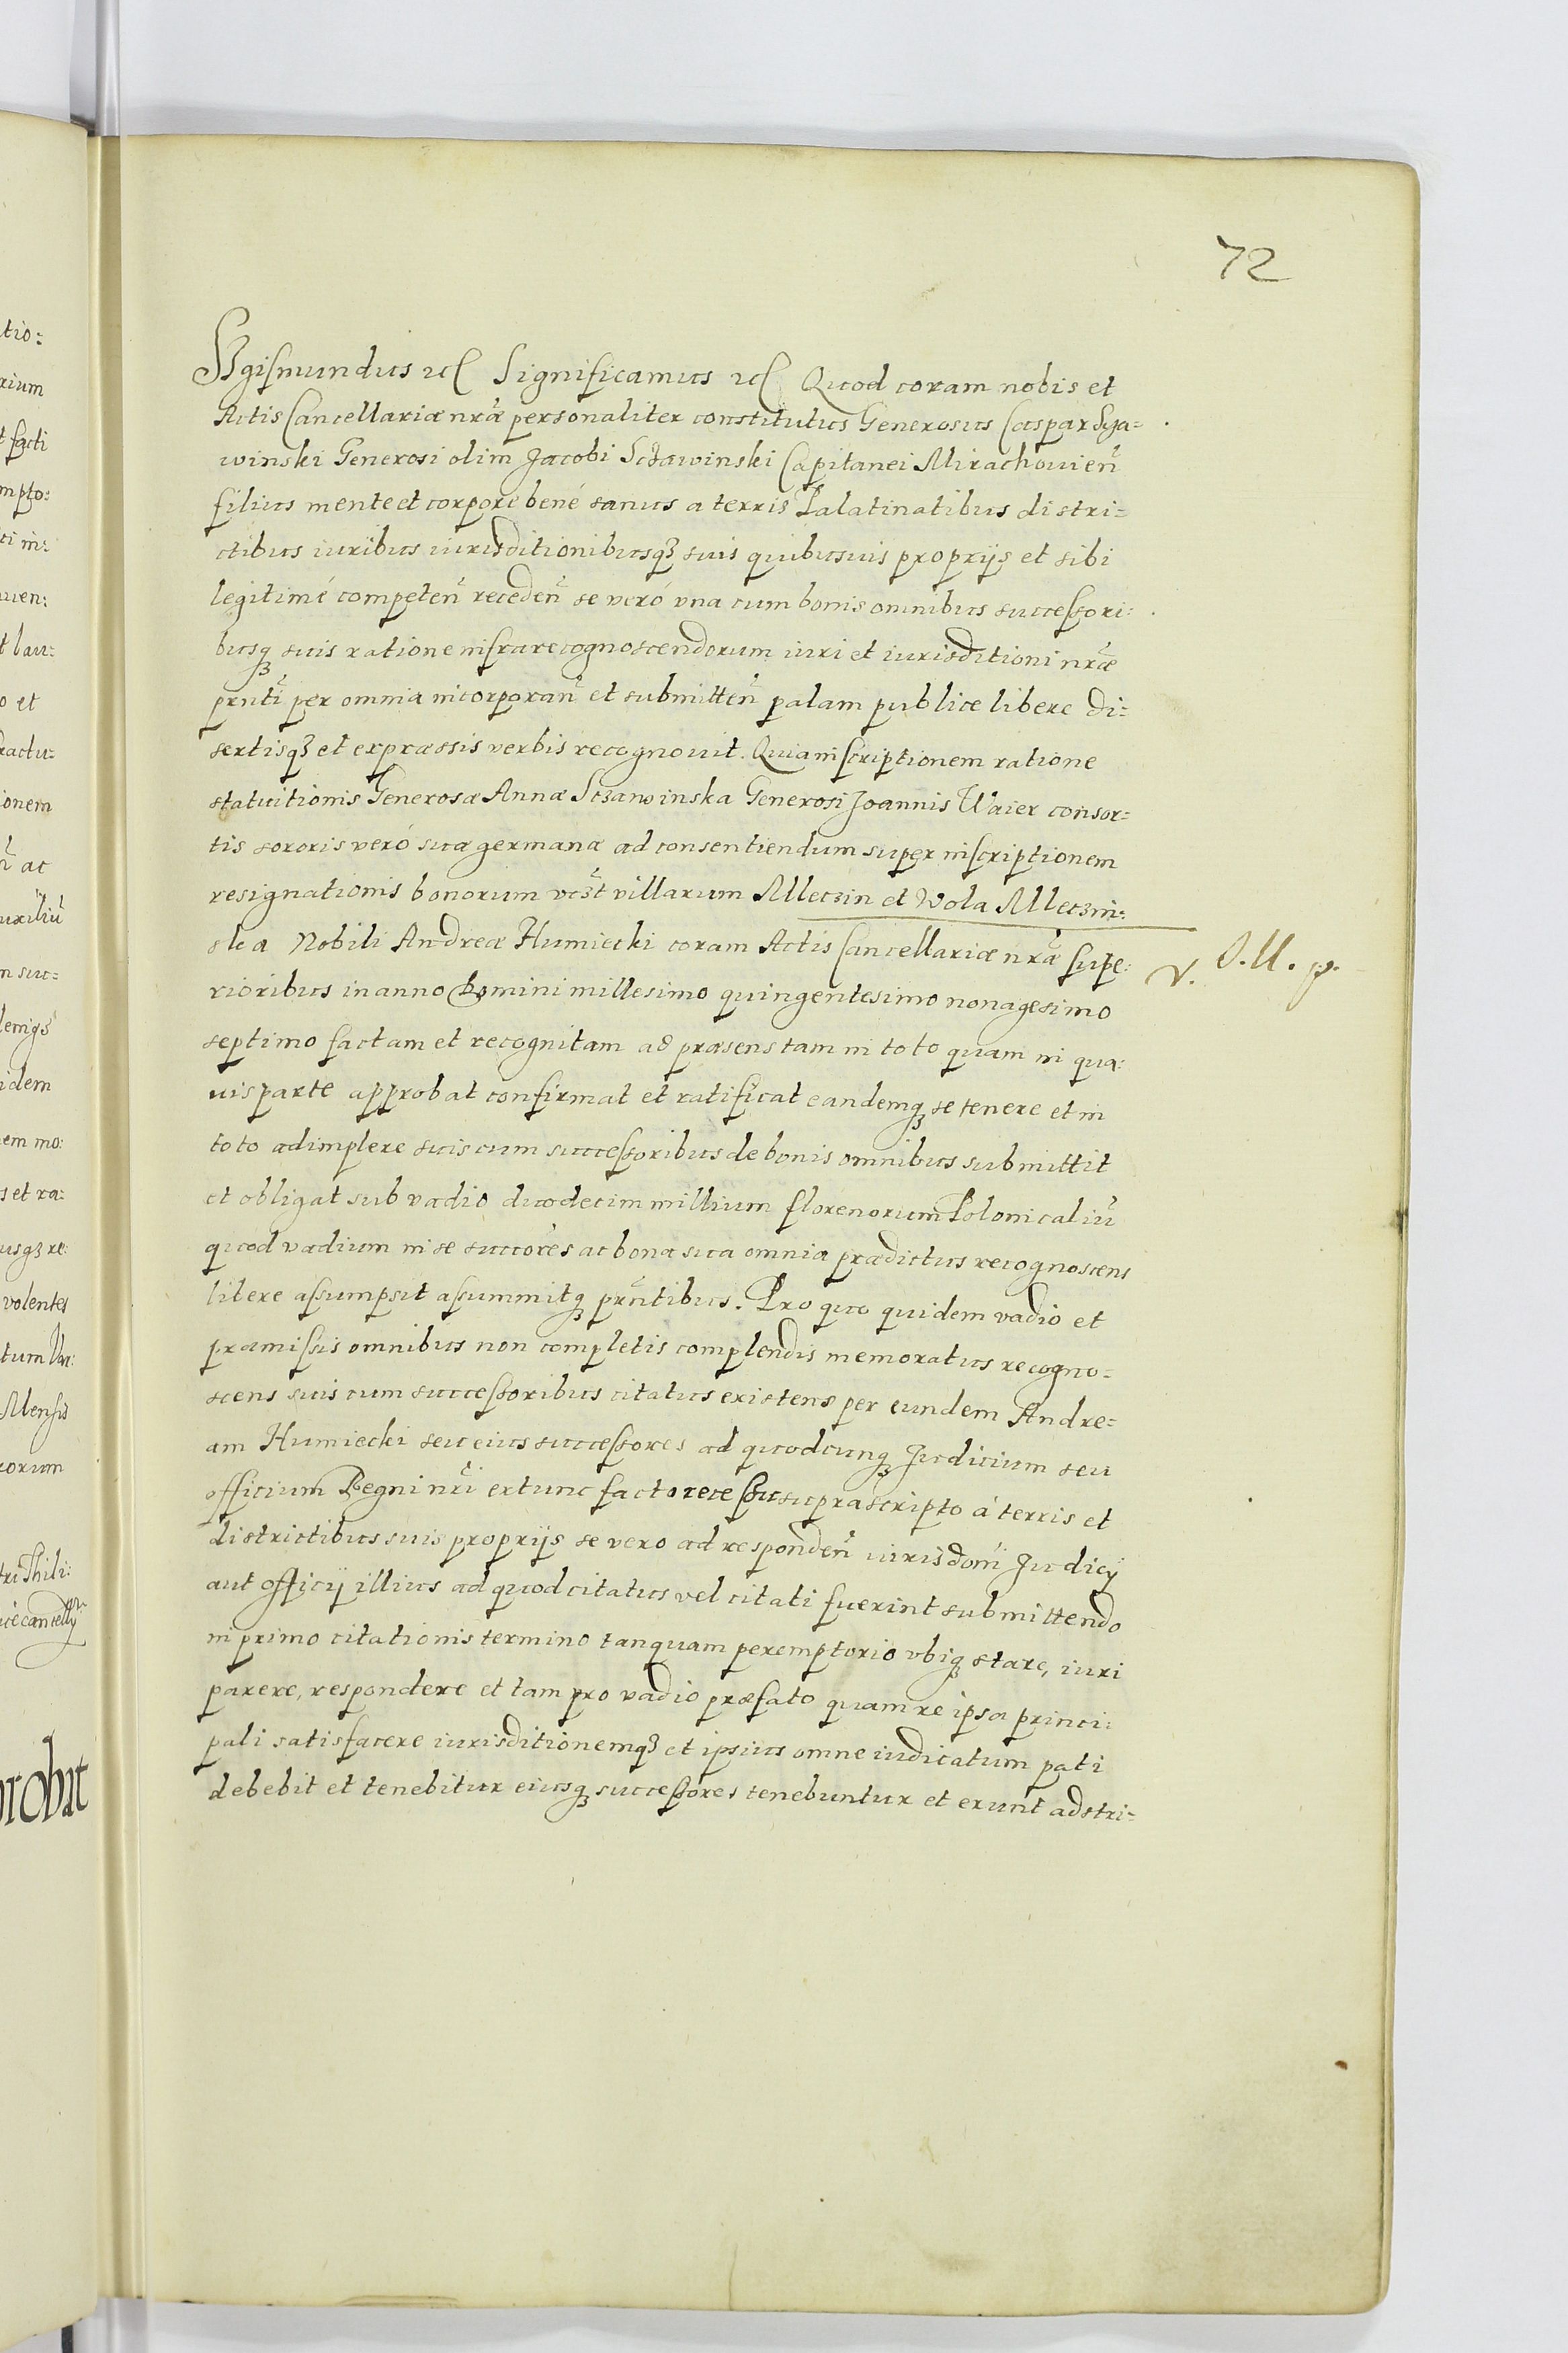 72
Sigismundus etc Significamus etc Quod coram nobis et
Actis Cancellariæ nræ personaliter constitutus Generosus Caspar Scza-
winski Generosi olim Jacobi Sczawinski Capitanei Mirachouien̄
filius mente et corpore bené sanus a terris Palatinatibus distri-
ctibus iuribus iurisditionibusqȝ suis quibusuis proprijs et sibi
legitimé competen̄ receden̄ se veró vna cum bonis omnibus successori-
busqȝ suis ratione infrarecognoscendorum iuri et iurisditioni nræ
prnti per omnia incorporan̄ et submitten̄ palam publice libere di-
sertisqȝ et expræssis verbis recognouit. Quia inscriptionem ratione
statuitionis Generosæ Annæ Sczawinska Generosi Joannis Waier consor-
tis sororis veró suæ germanæ ad consentiendum super inscriptionem
resignationis bonorum vczt villarum Mleczin et Wola Mleczin-
ska Nobili Andreæ Humiecki coram Actis Cancellariæ nræ supe-
rioribus in anno Domini millesimo quingentesimo nonagesimo
septimo factam et recognitam ad præsens tam in toto quam in qua-
uis parte approbat confirmat et ratificat eandemqȝ se tenere et in
toto adimplere suis cum successoribus de bonis omnibus submittit
et obligat sub vadio duodecim millium florenorum Polonicaliū
quod vadium in se succores ac bona sua omnia prædictus recognoscens
libere assumpsit assummitqȝ prntibus. Pro quo quidem vadio et
præmissis omnibus non completis complendis memoratus recogno-
scens suis cum successoribus citatus existens per eundem Andre-
am Humiecki seu eius successores ad quodcunqȝ Judicium seu
officium Regni nri extunc facto recessu suprascripto á terris et
districtibus suis proprijs se vero ad responden̄ iurisdoni Judicÿ
aut officÿ illius ad quod citatus vel citati fuerint submittendo
in primo citationis termino tanquam peremptorio vbiqȝ stare, iuri
parere, respondere et tam pro vadio præfato quam re ipsa princi-
pali satisfacere iurisditionemqȝ et ipsius omne iudicatum pati
debebit et tenebitur eiusqȝ successores tenebuntur et erunt adstri-
v. O.U. p.